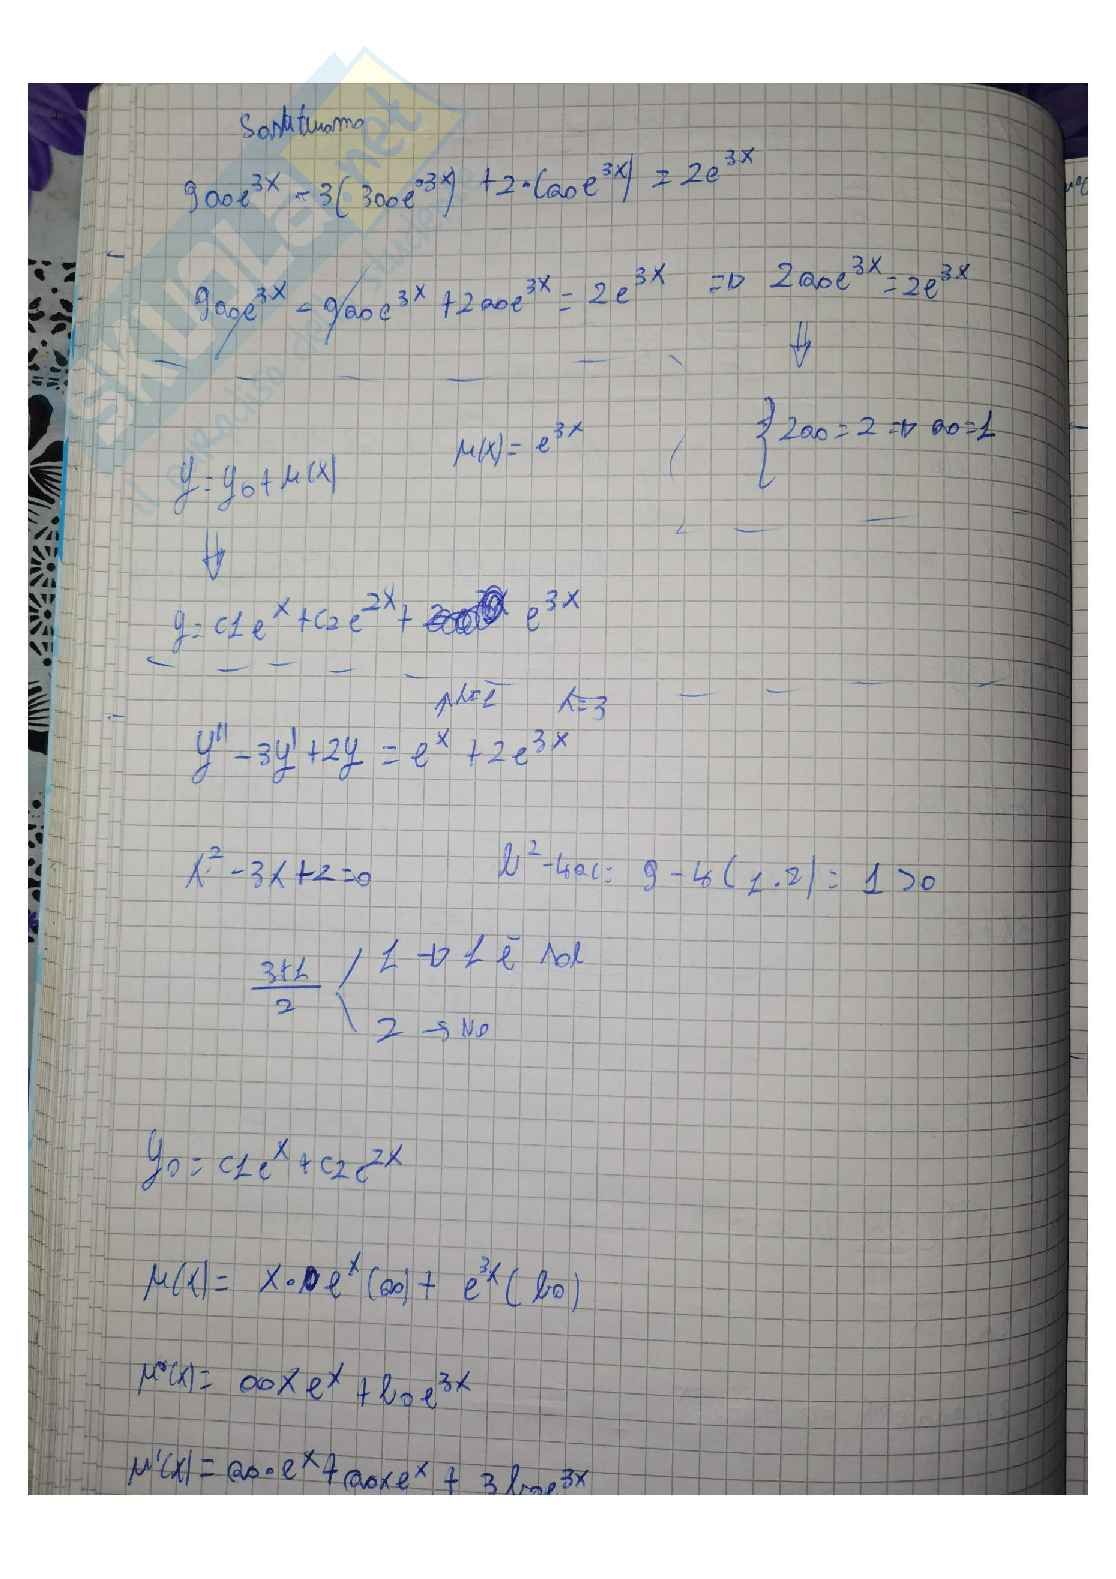 Sostituiamo
9a0e^3x - 3(3a0e^3x) + 2·(a0e^3x) = 2e^3x
9a0e^3x - 9a0e^3x + 2a0e^3x = 2e^3x => 2a0e^3x = 2e^3x
⇓
{ 2a0 = 2 => a0 = 1
μ(x) = e^3x
y = y0 + μ(x)
⇓
y = c1e^x + c2e^2x + e^3x
λ=1 λ=3
y'' - 3y' + 2y = e^x + 2e^3x
λ^2 - 3λ + 2 = 0 b^2 - 4ac = 9 - 4(1·2) = 1 > 0
3±1 / 2
1 -> 1 è sol
2 -> No
y0 = c1e^x + c2e^2x
μ(x) = x·e^x(a0) + e^3x(b0)
μ(x) = a0xe^x + b0e^3x
μ'(x) = a0·e^x + a0xe^x + 3b0e^3x
SKUOLA.net
il paradiso dello studente